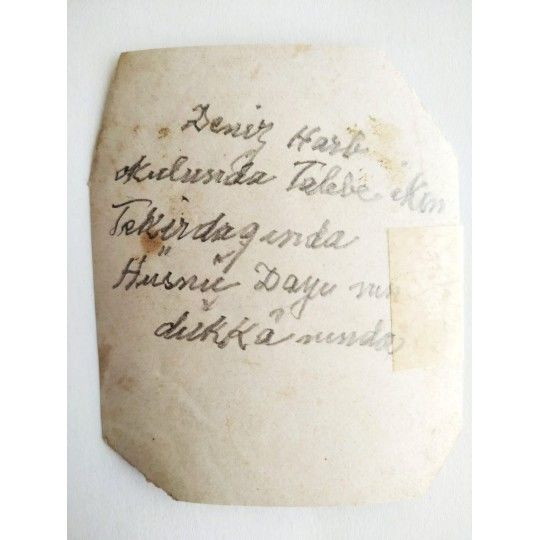 Deniz Harb
okulunda Talebe iken
Tekirdağında
Hüsnü Dayı nın
dükkânında